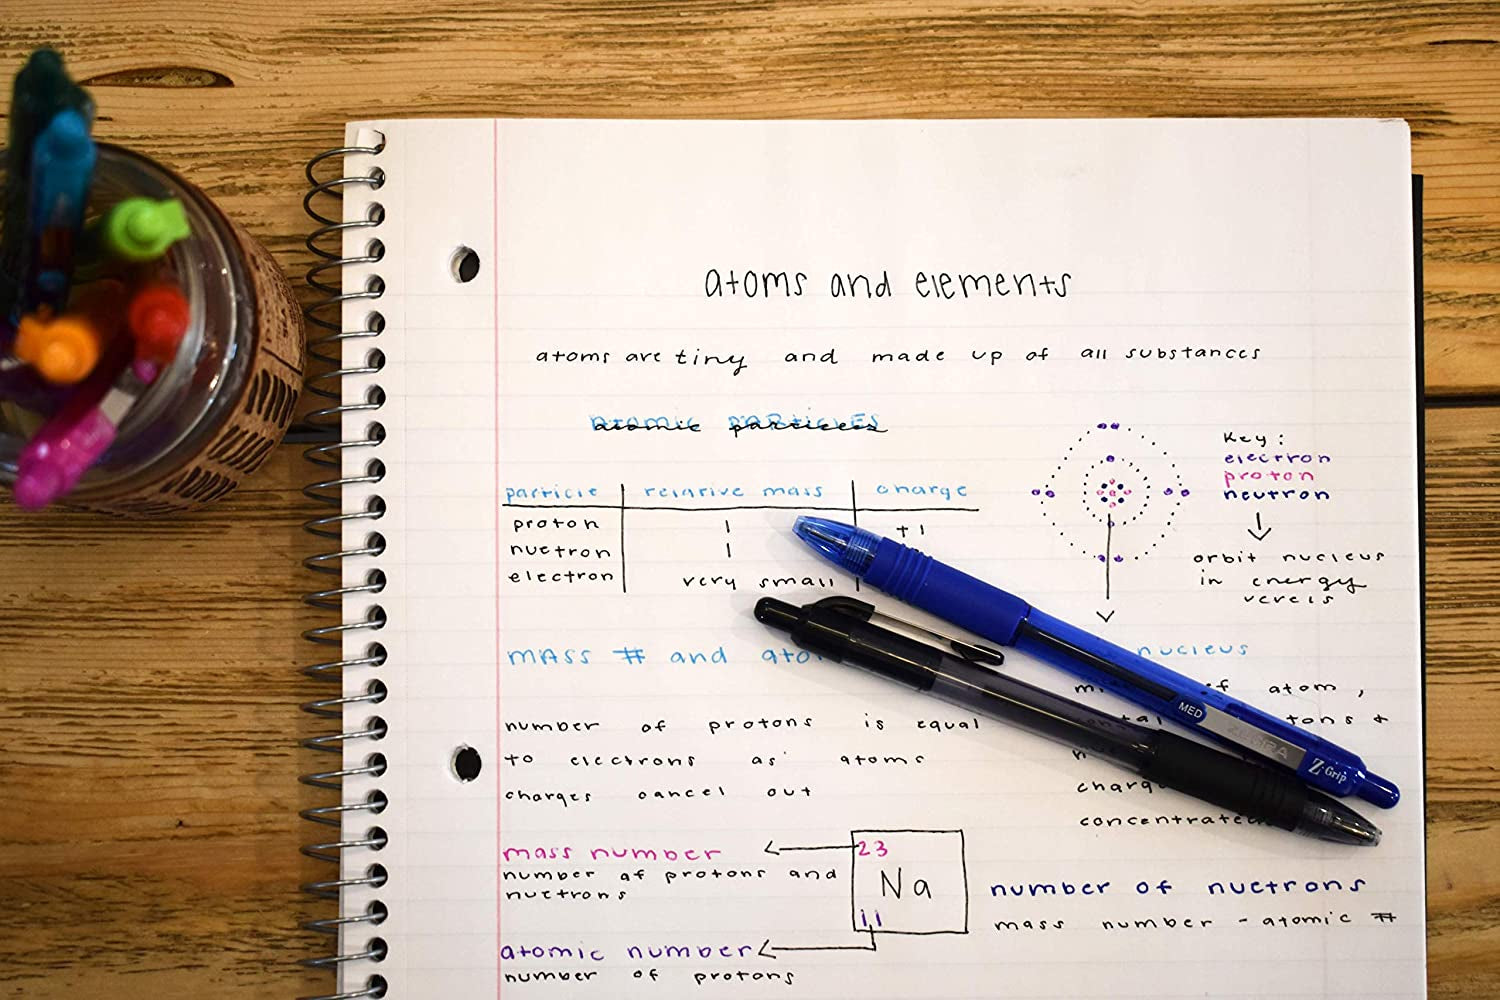 atoms and elements
atoms are tiny and made up of all substances
atomic particles
particle relative mass charge
proton 1 +1
nuetron 1
electron very small
Key:
electron
proton
neutron
orbit nucleus
in energy
MASS # and
nucleus
of atom,
number of protons is equal
to electrons as atoms
charges cancel out
MED ZEBRA Z-Grip
mass number
number of protons and
nuetrons
23
Na
11
atomic number
number of protons
number of nuetrons
mass number - atomic #